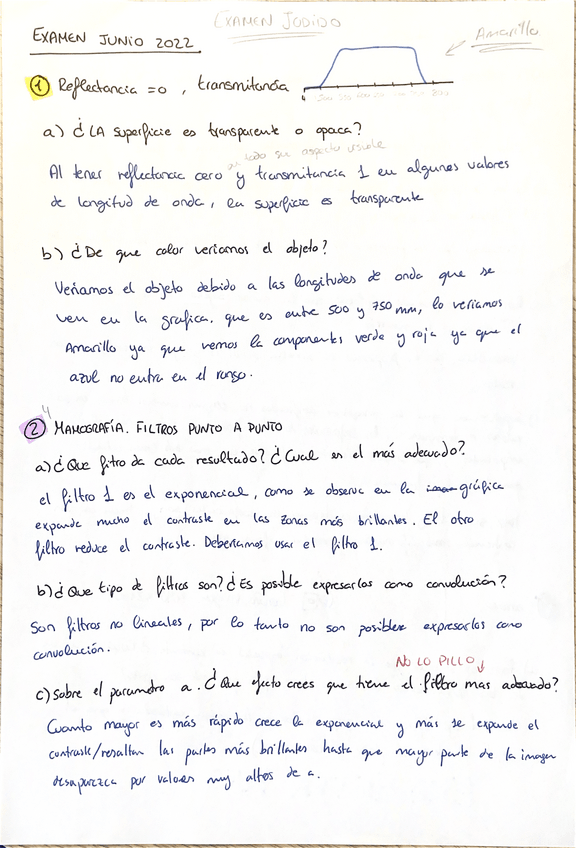 EXAMEN JODIDO
EXAMEN JUNIO 2022
Amarillo
① Reflectancia = 0 , transmitancia
a) ¿LA superficie es transparente o opaca?
en todo su aspecto visible
Al tener reflectancia cero y transmitancia 1 en algunos valores
de longitud de onda, la superficie es transparente
b) ¿De que color veriamos el objeto?
Veríamos el objeto debido a las longitudes de onda que se
ven en la grafica, que es entre 500 y 750 mm, lo veriamos
Amarillo ya que vemos la componentes verde y roja ya que el
azul no entra en el rango.
4
② MAMOGRAFÍA. FILTROS PUNTO A PUNTO
a) ¿Que fitro da cada resultado? ¿Cual es el más adecuado?
el filtro 1 es el exponencial, como se observa en la gráfica
expande mucho el contraste en las zonas más brillantes. El otro
filtro reduce el contraste. Deberiamos usar el filtro 1.
b) ¿Que tipo de filtros son? ¿Es posible expresarlos como convolución?
Son filtros no lineales, por lo tanto no son posibles expresarlos como
convolución.
NO LO PILLO
c) Sobre el parametro a. ¿Que efecto crees que tiene el filtro mas adecuado?
Cuanto mayor es más rápido crece la exponencial y más se expande el
contraste/resaltan las partes más brillantes hasta que mayor parte de la imagen
desaparezca por valores muy altos de a.